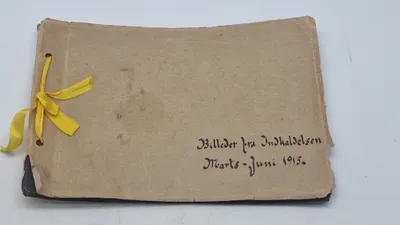 Billeder fra Indkaldelsen
Marts-Juni 1915.